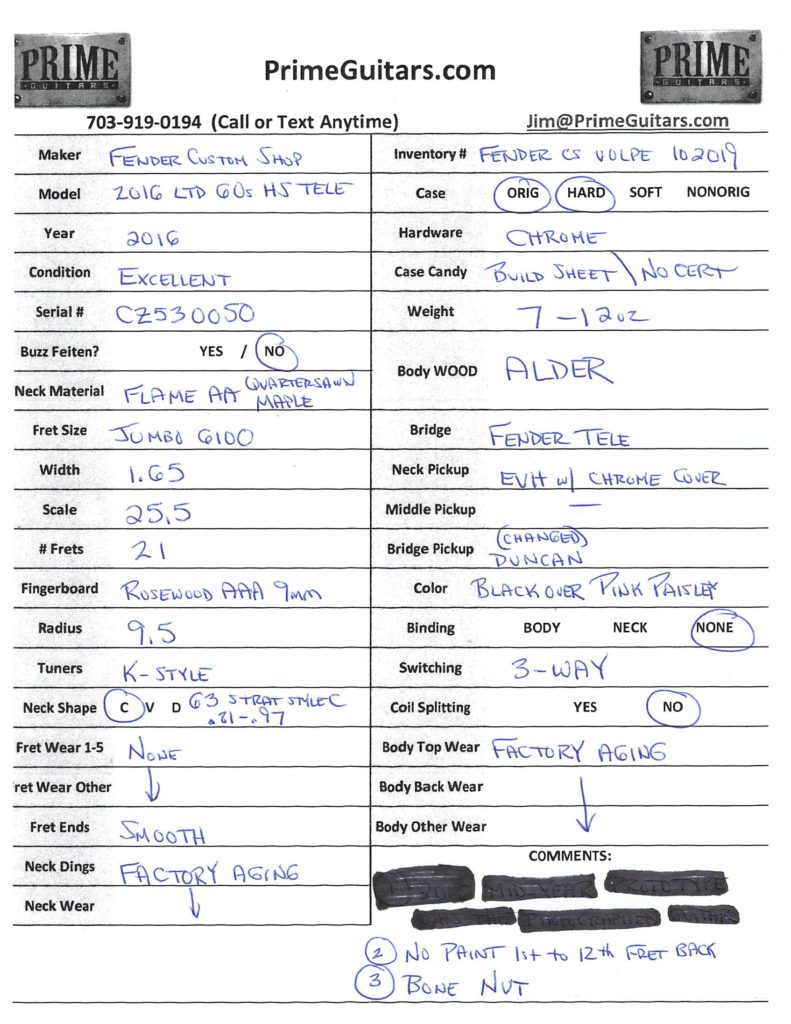 PRIME
GUITARS
PrimeGuitars.com
PRIME
GUITARS
703-919-0194 (Call or Text Anytime)
Jim@PrimeGuitars.com
Maker FENDER CUSTOM SHOP
Model 2016 LTD 60s HS TELE
Year 2016
Condition EXCELLENT
Serial # CZ530050
Buzz Feiten? YES / NO
Neck Material FLAME AA QUARTERSAWN
MAPLE
Fret Size JUMBO 6100
Width 1.65
Scale 25.5
# Frets 21
Fingerboard ROSEWOOD AAA 9mm
Radius 9.5
Tuners K-STYLE
Neck Shape C V D 63 STRAT STYLE C
.81-.97
Fret Wear 1-5 NONE
ret Wear Other
Fret Ends SMOOTH
Neck Dings FACTORY AGING
Neck Wear
Inventory # FENDER CS VOLPE 102019
Case ORIG HARD SOFT NONORIG
Hardware CHROME
Case Candy BUILD SHEET \ NO CERT
Weight 7-12oz
Body WOOD ALDER
Bridge FENDER TELE
Neck Pickup EVH w/ CHROME COVER
Middle Pickup —
Bridge Pickup (CHANGED)
DUNCAN
Color BLACK OVER PINK PAISLEY
Binding BODY NECK NONE
Switching 3-WAY
Coil Splitting YES NO
Body Top Wear FACTORY AGING
Body Back Wear
Body Other Wear
COMMENTS:
2 NO PAINT 1st to 12th FRET BACK
3 BONE NUT